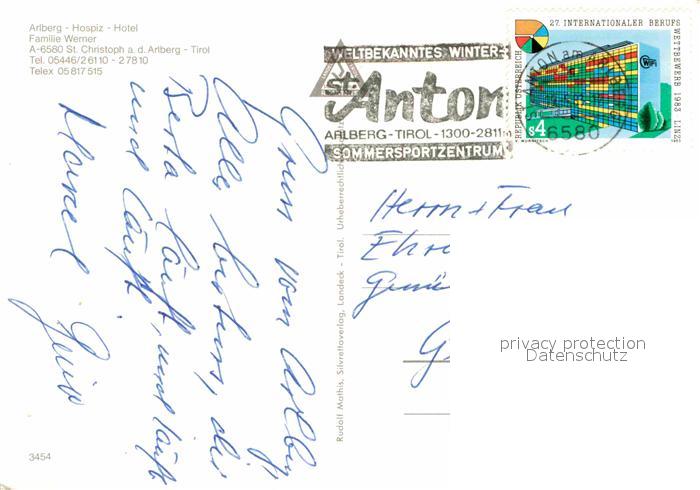 Arlberg - Hospiz - Hotel
Familie Werner
A-6580 St. Christoph a. d. Arlberg - Tirol
Tel. 05446/26110 - 27810
Telex 05817515
WELTBEKANNTES WINTER-
St. Anton
ARLBERG-TIROL-1300-2811m
SOMMERSPORTZENTRUM
27. INTERNATIONALER BERUFS
WETTBEWERB 1983 LINZ
REPUBLIK ÖSTERREICH
S4
ST. ANTON am
6580
Gruss vom Arlberg
Alles bestens, die
Berta läuft, und läuft
und läuft
Herrn + Frau
Rudolf Mathis, Silvrettaverlag, Landeck - Tirol. Urheberrechtlich
3454
privacy protection
Datenschutz